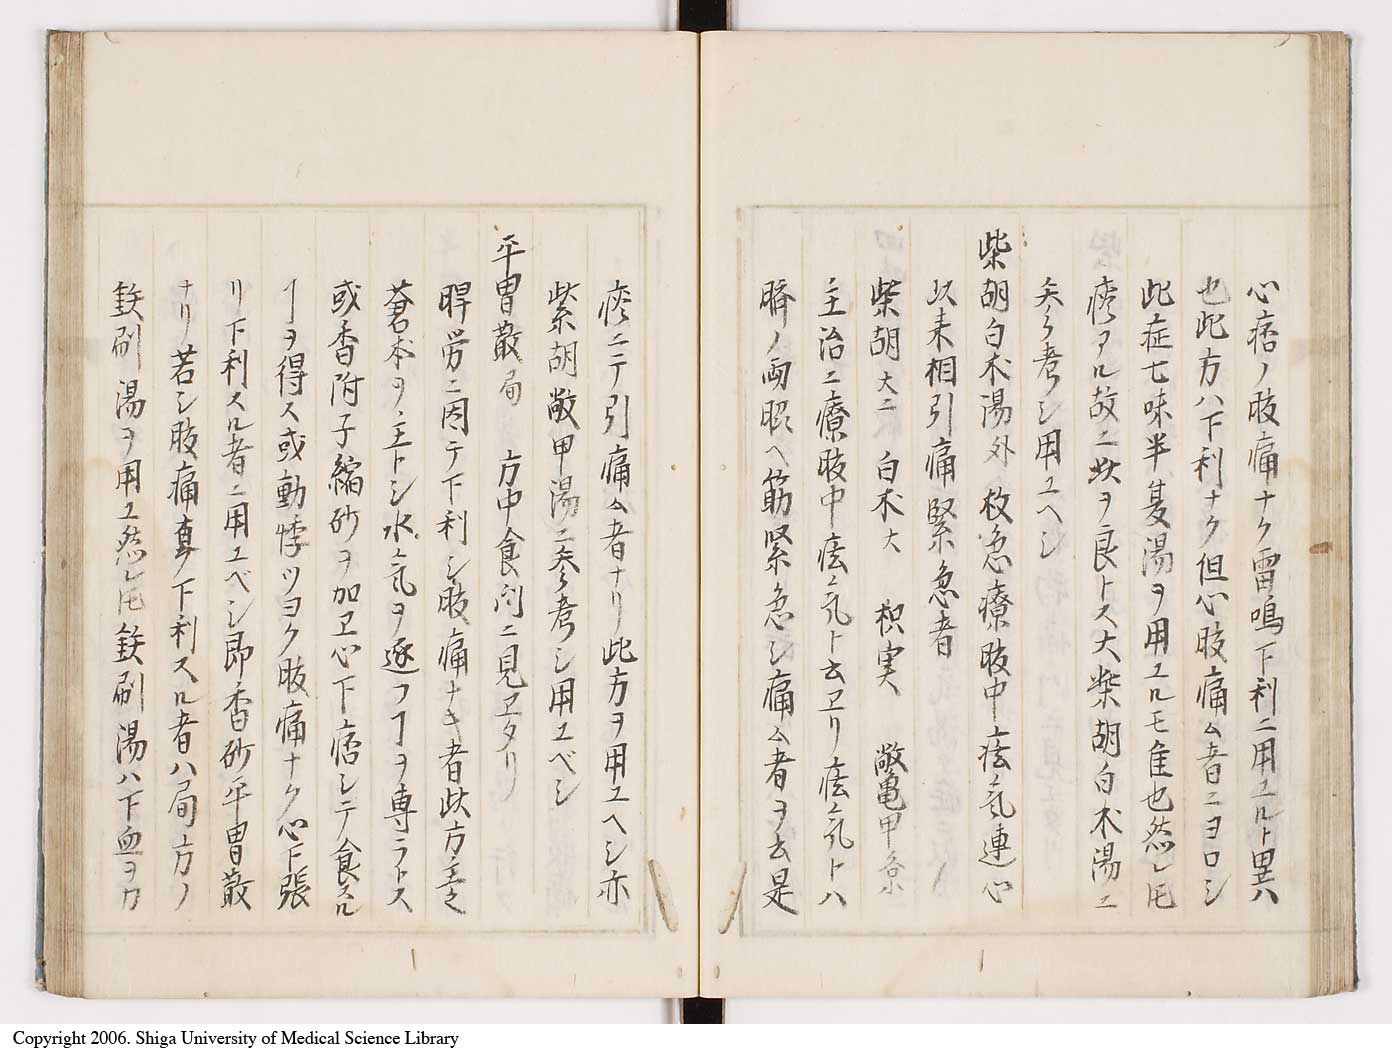 心痞ノ肢痛ナク雷鳴下利ニ用ユルト異ハ
也此方ハ下利ナク但心肢痛ム者ニヨロシ
此症七味半夏湯ヲ用ユルモ佳也然𪜈
痃ヲル故ニ𣁋ヲ良トス大柴胡白朮湯ニ
参考シ用ユヘシ
柴胡白朮湯外 救急療肢中痃气連心
以来相引痛緊急者
柴胡大二 白朮大 枳実 敞亀甲各小
主治ニ療肢中痃气ト云ヱリ痃气トハ
臍ノ両胁ヘ筋緊急シ痛ム者ヲ云是
痃ニテ引痛ム者ナリ此方ヲ用ユヘシ亦
柴胡敞甲湯ニ参考シ用ユベシ
平胃散局 方中食門ニ見ヱタリ
脾労ニ因テ下利シ肢痛ナキ者此方主之
蒼朮ヲ主トシ水气ヲ逐フヿヲ専ラトス
或香附子縮砂ヲ加ヱ心下痞シテ食スル
ヿヲ得ス或動悸ツヨク肢痛ナク心下張
リ下利スル者ニ用ユベシ即香砂平胃散
ナリ若シ肢痛真ノ下利スル者ハ局方ノ
鉄刷湯ヲ用ユ然𪜈鉄刷湯ハ下血ヲカ
Copyright 2006. Shiga University of Medical Science Library